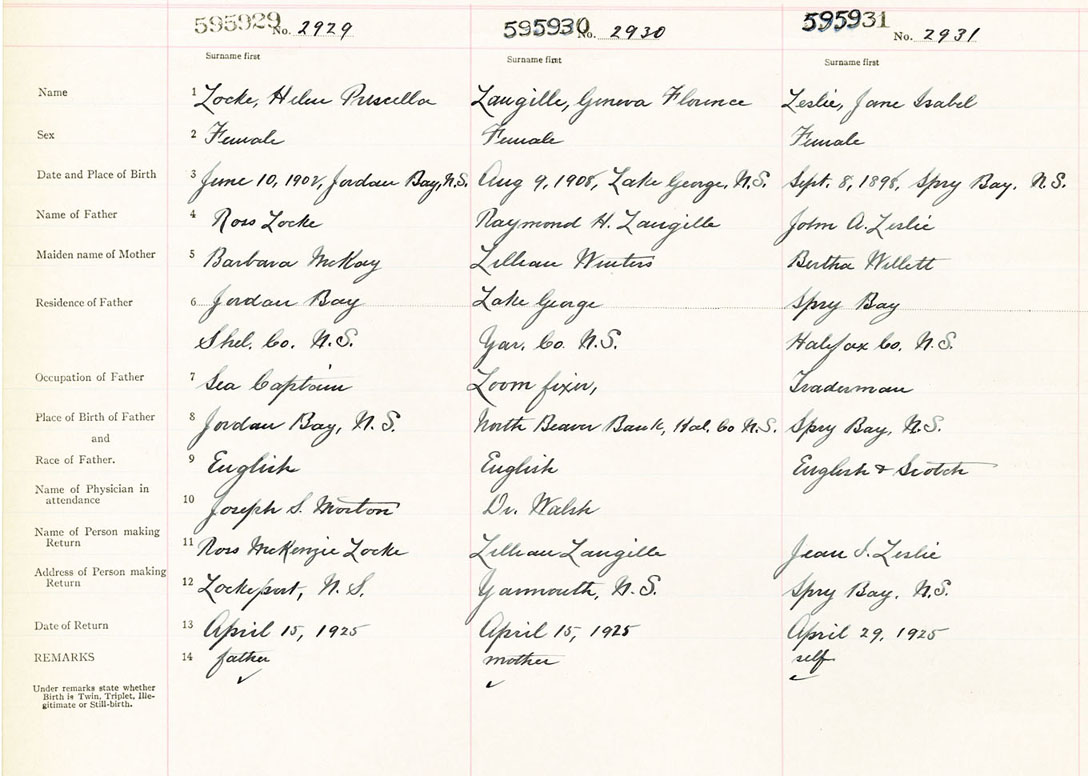 595929 No. 2929 595930 No. 2930 595931 No. 2931
Surname first Surname first Surname first
Name 1 Locke, Helen Priscella Langille, Geneva Florence Leslie, Jane Isabel
Sex 2 Female Female Female
Date and Place of Birth 3 June 10, 1902, Jordan Bay, N.S. Aug 9, 1908, Lake George, N.S. Sept. 8, 1898, Spry Bay, N.S.
Name of Father 4 Ross Locke Raymond H. Langille John A. Leslie
Maiden name of Mother 5 Barbara McKay Lillian Winters Bertha Willett
Residence of Father 6 Jordan Bay Lake George Spry Bay
Shel. Co. N.S. Yar. Co N.S. Halifax Co. N.S.
Occupation of Father 7 Sea Captain Loom fixer, Traderman
Place of Birth of Father 8 Jordan Bay, N.S. North Beaver Bank, Hal. Co N.S. Spry Bay, N.S.
and
Race of Father. 9 English English English & Scotch
Name of Physician in
attendance 10 Joseph S. Morton Dr. Walsh
Name of Person making
Return 11 Ross McKenzie Locke Lillian Langille Jean I. Leslie
Address of Person making
Return 12 Lockeport, N.S. Yarmouth, N.S. Spry Bay, N.S.
Date of Return 13 April 15, 1925 April 15, 1925 April 29, 1925
REMARKS 14 father mother self
Under remarks state whether
Birth is Twin, Triplet, Ille-
gitimate or Still-birth.